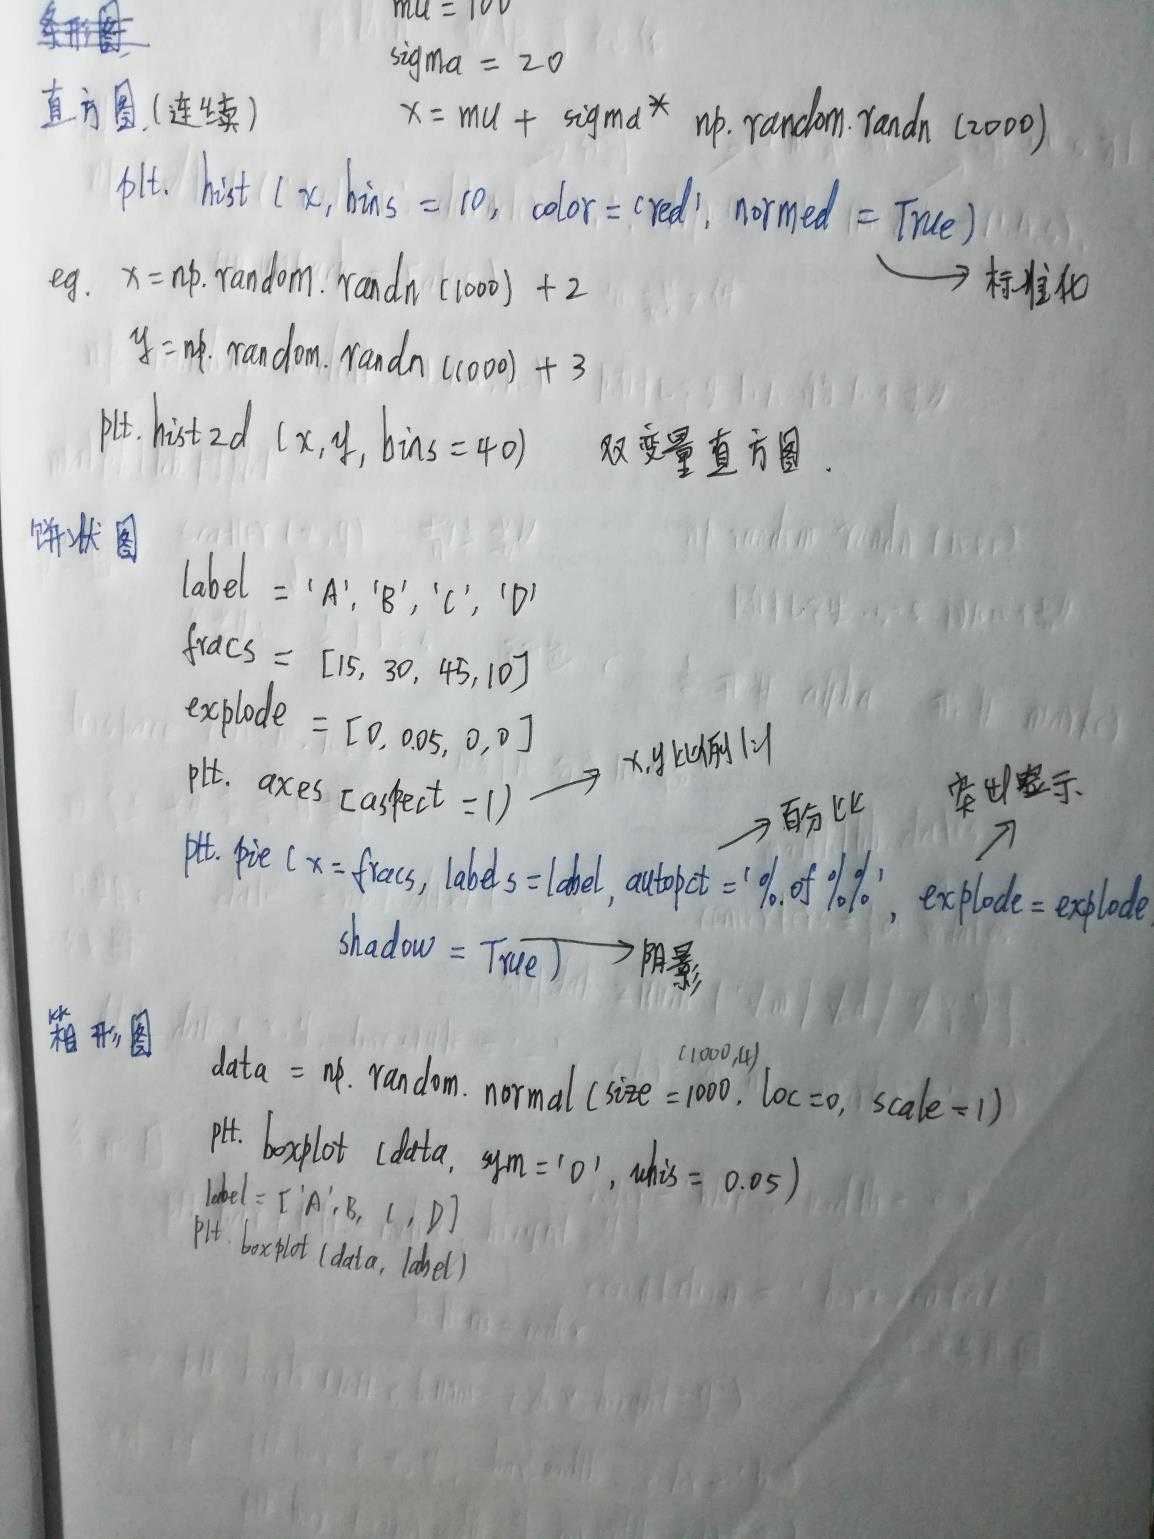 条形图
mu = 100
sigma = 20
直方图.(连续)
x = mu + sigma* np.random.randn (2000)
plt. hist ( x, bins = 10, color = 'red', normed = True)
标准化
eg. x = np.random.randn (1000) + 2
y = np.random.randn (1000) + 3
plt.hist2d (x, y, bins = 40) 双变量直方图.
饼状图
label = 'A', 'B', 'C', 'D'
fracs = [15, 30, 45, 10]
explode = [0, 0.05, 0, 0]
plt. axes [aspect = 1) → x,y比例1:1
百分比
突出显示
plt. pie ( x = fracs, labels = label, autopct = '%.of %%', explode = explode,
shadow = True) → 阴影
箱形图
(1000,4)
data = np.random.normal (size = 1000, loc = 0, scale = 1)
plt. boxplot (data, sym = 'o', whis = 0.05)
label = ['A', B, C, D]
plt. boxplot (data, label)